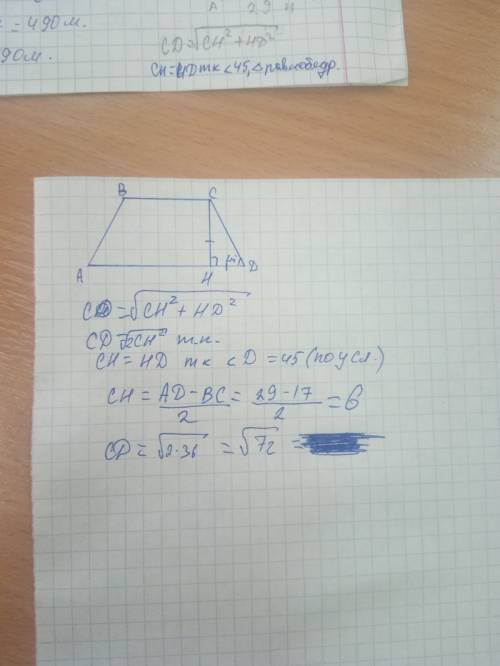 = 490м.
90м.
A 29 H
CD=√CH²+HD²
CH=HD тк <45, △ равнобедр.
B C
A H D
CD=√CH²+HD²
CD=√2CH² т.к.
CH=HD тк <D=45(по усл.)
CH=AD-BC/2=29-17/2=6
CD=√2·36=√72=